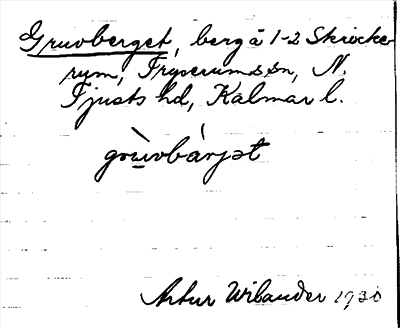 Gruvberget, berg å 1-2 Skricke-
rum, Tryserums sn, N.
Tjusts hd, Kalmar l.
grùvbárjət
Artur Wilander 1930